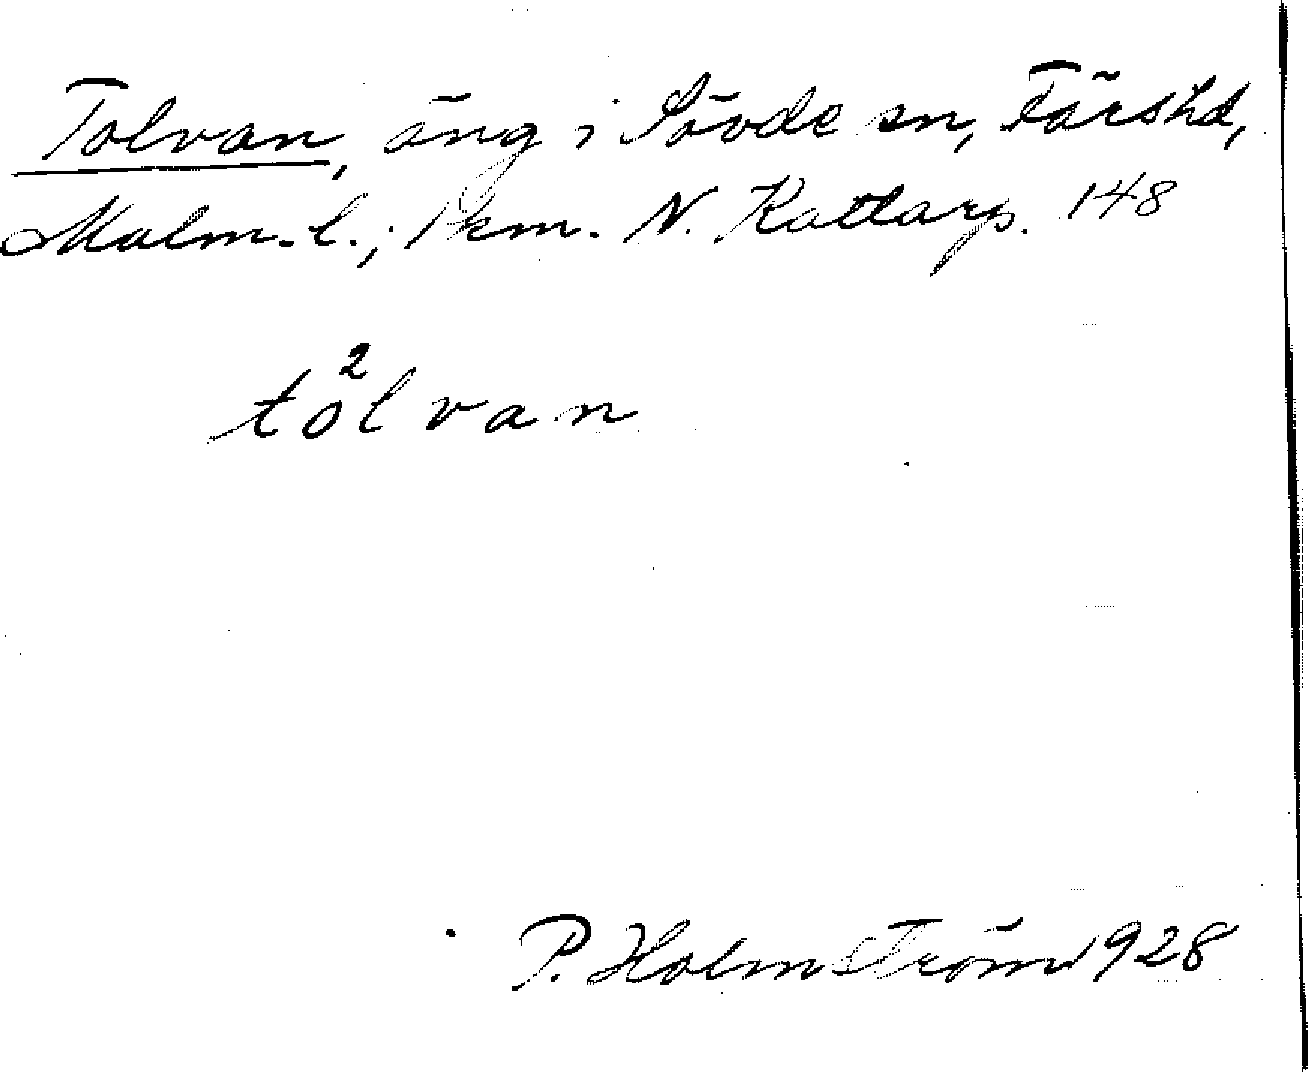 Tolvan, äng i Sövde sn, Färshd,
Malm. l.; Pkm. N. Kattarp. 148
to²lvan
P. Holmström 1928